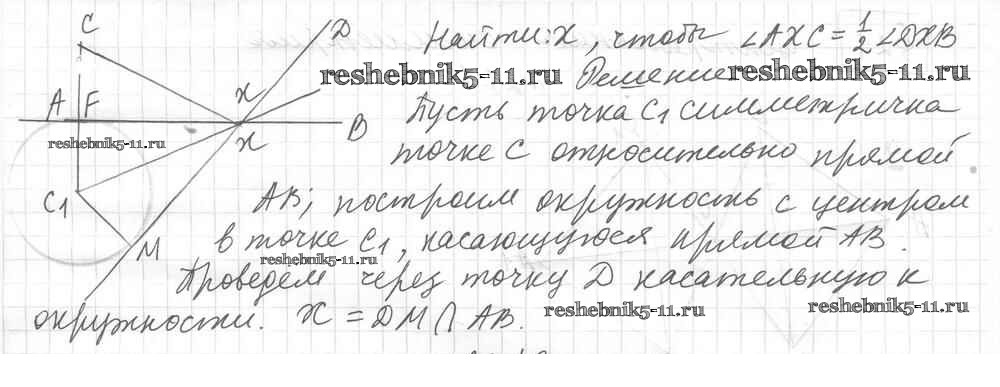 C
D
Найти: X, чтобы ∠AXC = 1/2 ∠DXB
reshebnik5-11.ru Решение reshebnik5-11.ru
A F X B
Пусть точка C₁ симметрична
reshebnik5-11.ru X
точке C относительно прямой
C₁ AB; построим окружность с центром
M в точке C₁, касающуюся прямой AB.
reshebnik5-11.ru
Проведем через точку D касательную к
reshebnik5-11.ru reshebnik5-11.ru
окружности. X = DM ∩ AB.